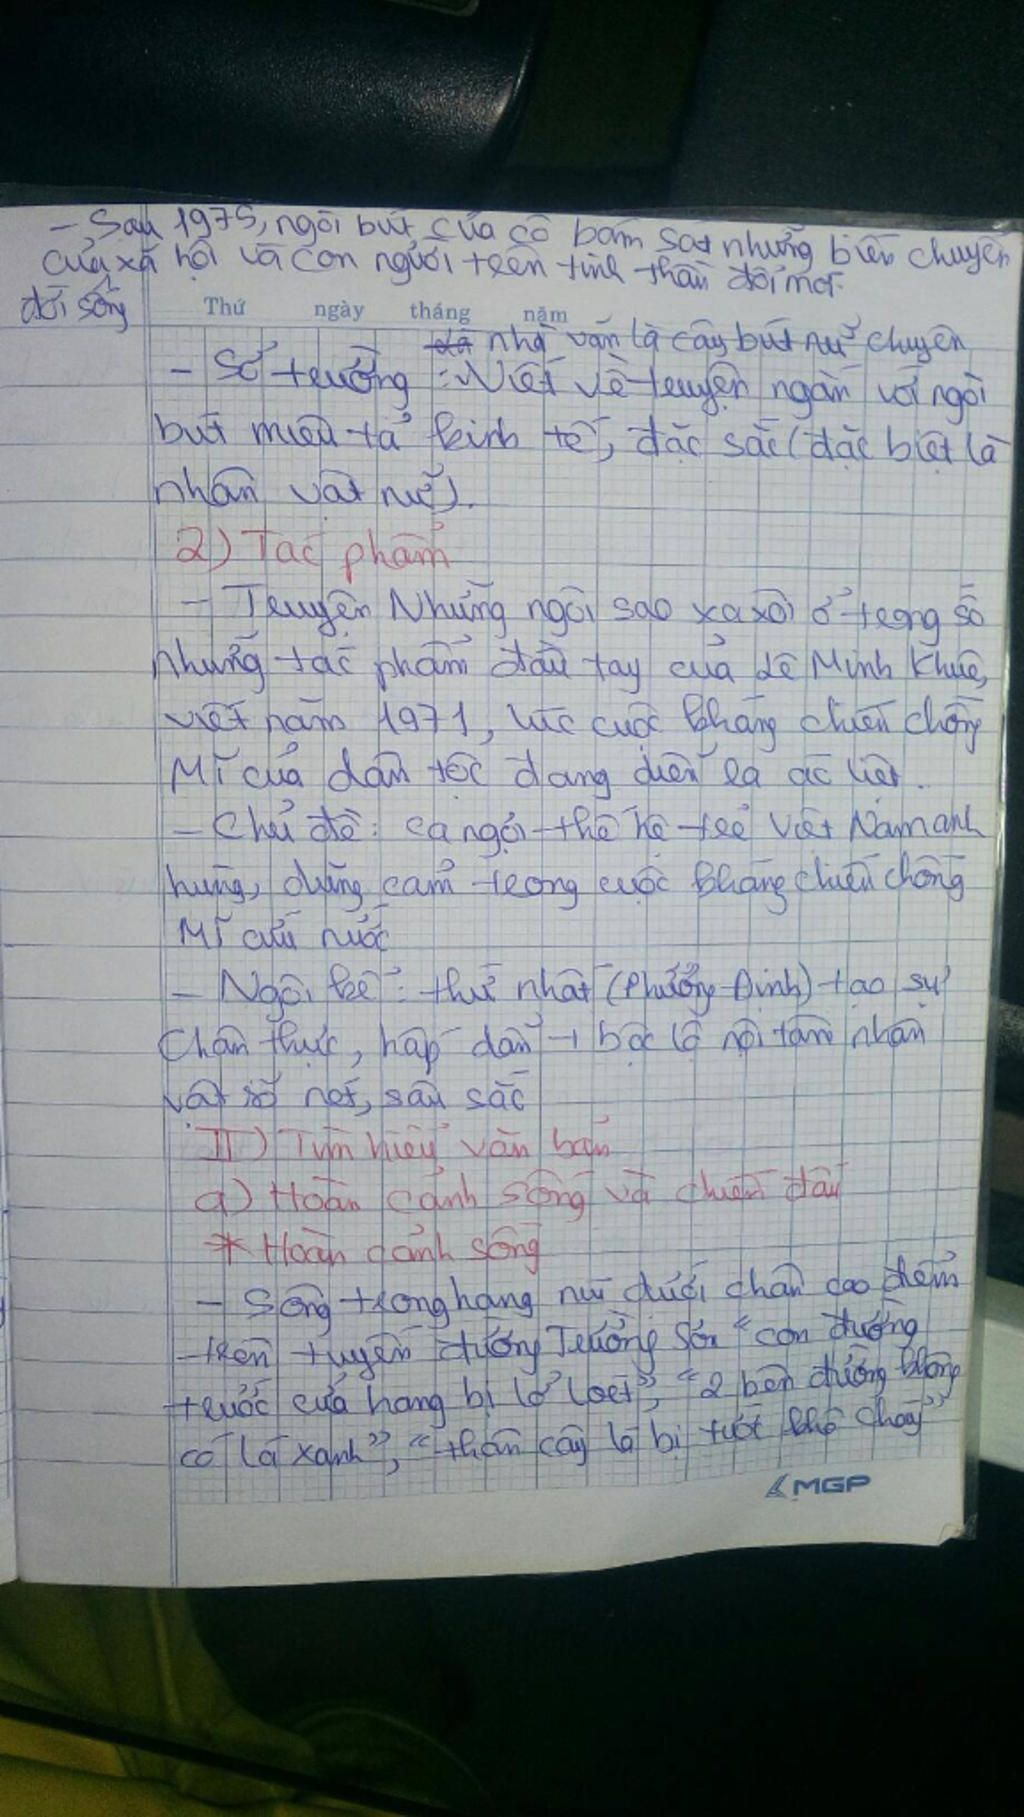 - Sau 1975, ngòi bút của cô bám sát những biến chuyển
của xã hội và con người trên tinh thần đổi mới.
đời sống
Thứ ngày tháng năm
nhà văn là cây bút nữ chuyên
- Sở trường: Viết về truyện ngắn với ngòi
bút miêu tả kinh tế, đặc sắc (đặc biệt là
nhân vật nữ).
2) Tác phẩm
- Truyện Những ngôi sao xa xôi ở trong số
những tác phẩm đầu tay của Lê Minh Khuê,
viết năm 1971, lúc cuộc kháng chiến chống
Mĩ của dân tộc đang diễn ra ác liệt.
- Chủ đề: ca ngợi thế hệ trẻ Việt Nam anh
hùng, dũng cảm trong cuộc kháng chiến chống
Mĩ cứu nước
- Ngôi kể: thứ nhất (Phương Định) tạo sự
chân thực, hấp dẫn → bộc lộ nội tâm nhân
vật rõ nét, sâu sắc
II) Tìm hiểu văn bản
a) Hoàn cảnh sống và chiến đấu
* Hoàn cảnh sống
- Sống trong hang núi dưới chân cao điểm
trên tuyến đường Trường Sơn "con đường
trước cửa hang bị lở loét", "2 bên đường không
có lá xanh", "thân cây bị tước khô cháy"
MGP